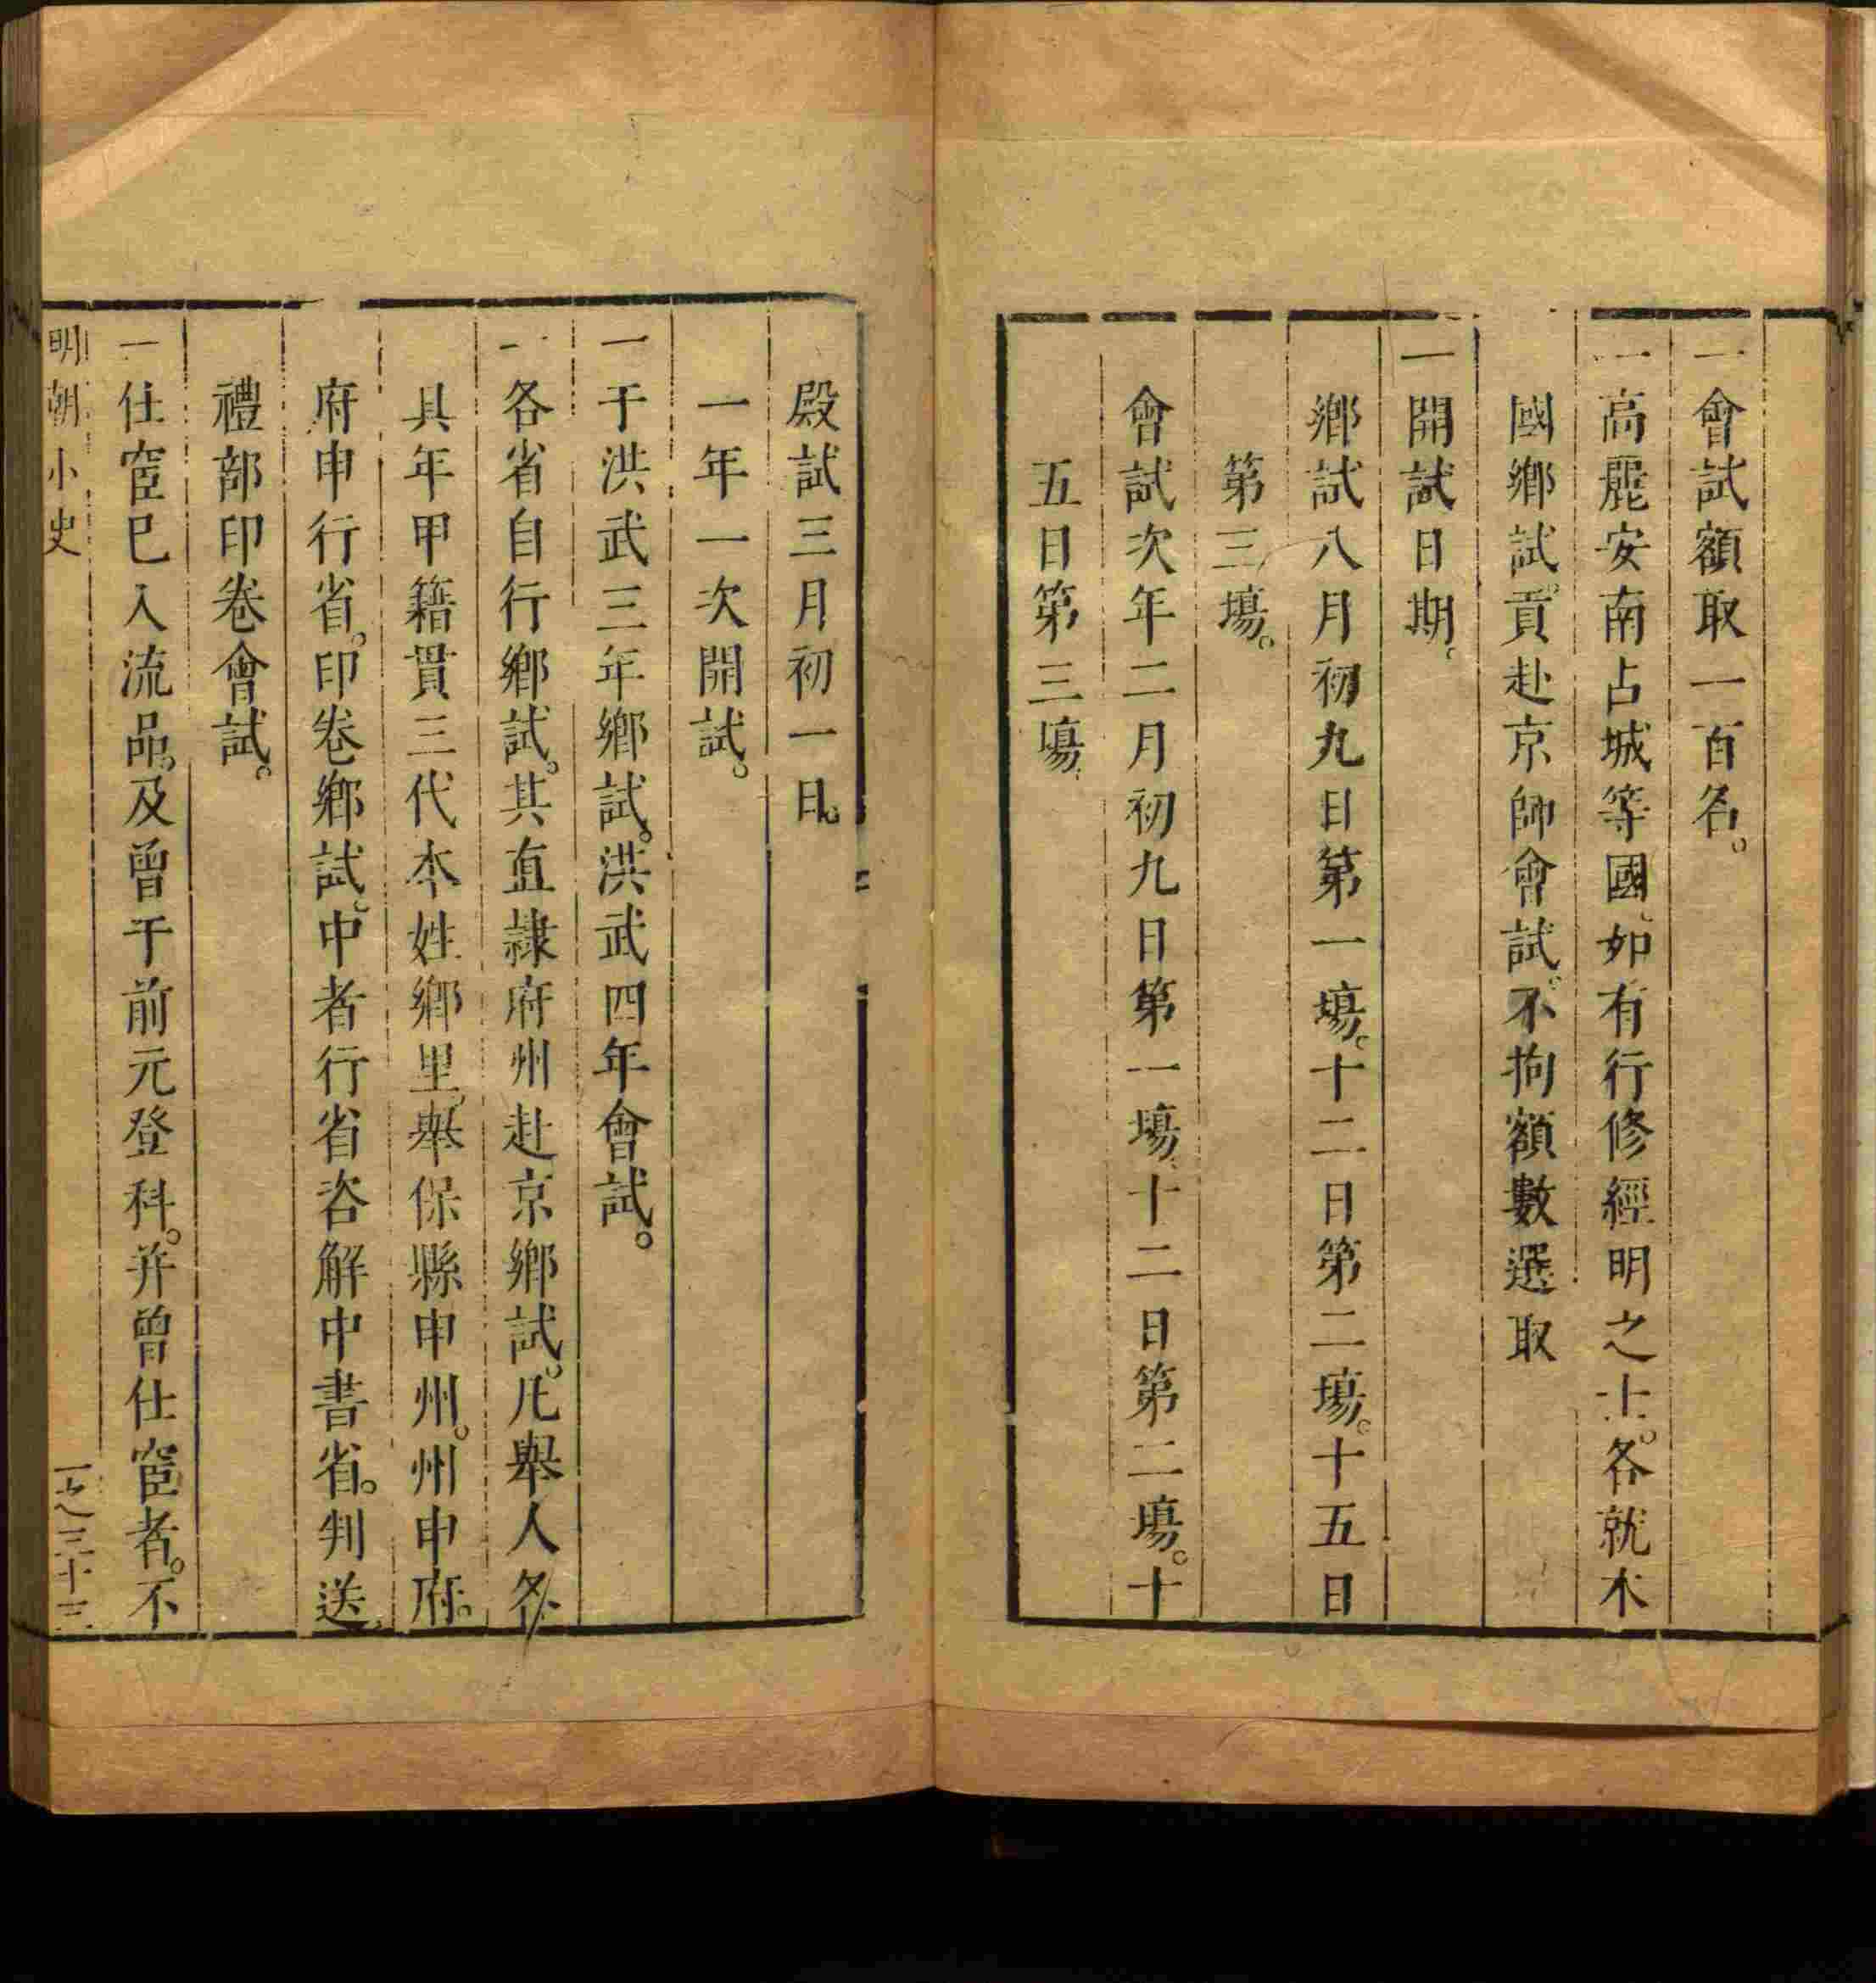 一會試額取一百名。
一高麗安南占城等國。如有行修經明之士。各就本
國鄉試。貢赴京師會試。不拘額數選取
一開試日期。
鄉試八月初九日第一場。十二日第二場。十五日
第三場。
會試次年二月初九日第一場。十二日第二場。十
五日第三場。
殿試三月初一日。
一年一次開試。
一于洪武三年鄉試。洪武四年會試。
一各省自行鄉試。其直隸府州赴京鄉試。凡舉人各
具年甲籍貫三代本姓。鄉里。舉保縣申州。州申府。
府申行省。印卷鄉試。中者行省咨解中書省。判送。
禮部印卷會試。
一仕宦已入流品。及曾于前元登科。并曾仕宦者。不
明朝小史
一之三十三